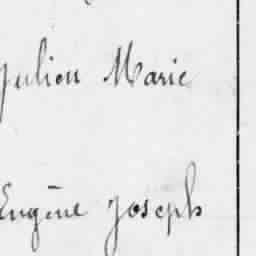 Julien Marie
Eugène Joseph